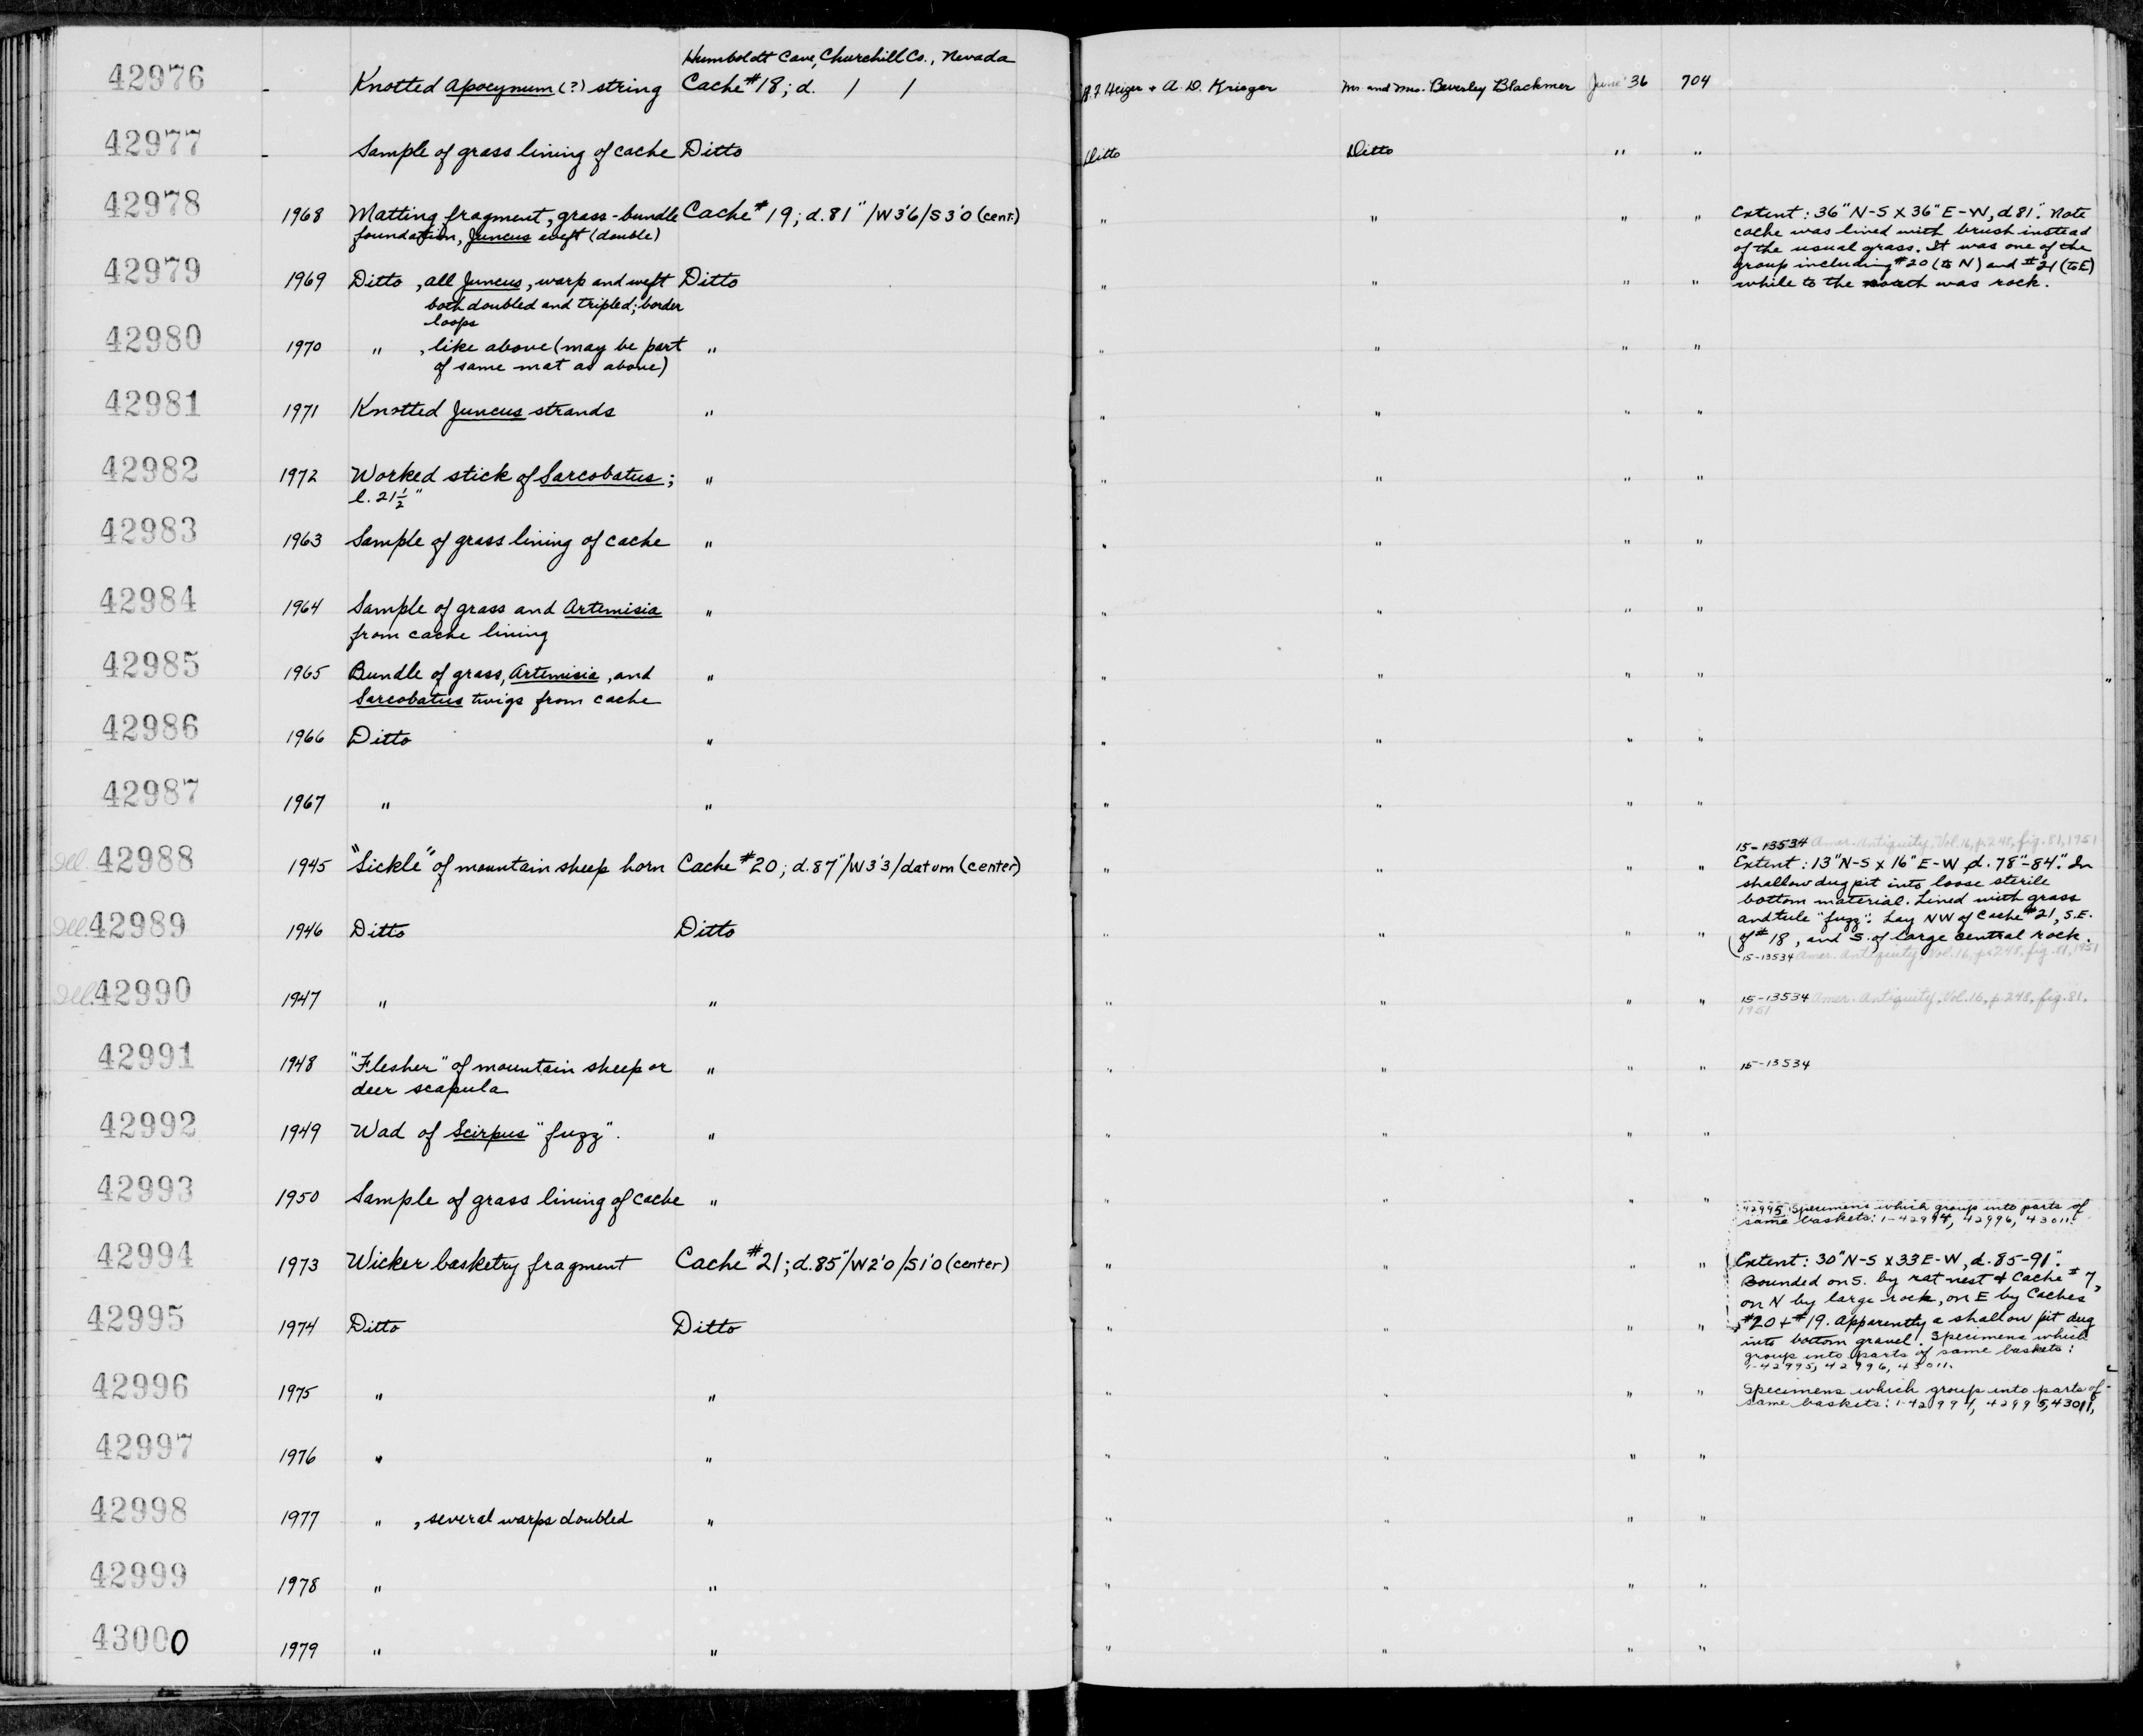 Humboldt Cave, Churchill Co., Nevada
42976 - Knotted Apocynum (?) string Cache #18; d. / / R.F. Heizer + A. D. Krieger Mr. and Mrs. Beverley Blackmer June '36 704
42977 - Sample of grass lining of cache Ditto Ditto Ditto " "
42978 1968 Matting fragment, grass-bundle Cache #19; d. 81"/W3'6/S3'0 (cent.) " " " " Extent: 36" N-S X 36" E-W, d 81". Note
foundation, Juncus weft (double) cache was lined with brush instead
of the usual grass. It was one of the
group including #20 (to N) and #21 (to E)
42979 1969 Ditto, all Juncus, warp and weft Ditto " " " " while to the south was rock.
both doubled and tripled; border
loops
42980 1970 " , like above (may be part " " " " "
of same mat as above)
42981 1971 Knotted Juncus strands " " " " "
42982 1972 Worked stick of Sarcobatus; " " " " "
l. 21½"
42983 1963 Sample of grass lining of cache " " " " "
42984 1964 Sample of grass and Artemisia " " " " "
from cache lining
42985 1965 Bundle of grass, Artemisia, and " " " " "
Sarcobatus twigs from cache
42986 1966 Ditto " " " " "
42987 1967 " " " " " "
15-13534 Amer. Antiquity, Vol. 16, p. 248, fig. 81, 1951
Ill. 42988 1945 "Sickle" of mountain sheep horn Cache #20; d. 87"/W3'3/datum (center) " " " " Extent: 13" N-S x 16" E-W, d. 78"-84". In
shallow dug pit into loose sterile
bottom material. Lined with grass
and tule "fuzz". Lay NW of Cache #21, S.E.
Ill. 42989 1946 Ditto Ditto " " " " of #18, and S. of large central rock.
15-13534 Amer. Antiquity, Vol. 16, p. 248, fig. 81, 1951
Ill. 42990 1947 " " " " " " 15-13534 Amer. Antiquity, Vol. 16, p. 248, fig. 81,
1951
42991 1948 "Flesher" of mountain sheep or " " " " " 15-13534
deer scapula
42992 1949 Wad of Scirpus "fuzz". " " " " "
42993 1950 Sample of grass lining of cache " " " " "
42995 Specimens which group into parts of
same baskets: 1-42994, 42996, 43011.
42994 1973 Wicker basketry fragment Cache #21; d. 85"/W2'0/S1'0 (center) " " " " Extent: 30" N-S x 33 E-W, d. 85-91".
Bounded on S. by rat nest & Cache #7,
on N by large rock, on E by Caches
42995 1974 Ditto Ditto " " " " #20 + #19. Apparently a shallow pit dug
into bottom gravel. Specimens which
group into parts of same baskets:
1-42995, 42996, 43011.
42996 1975 " " " " " " Specimens which group into parts of
same baskets: 1-42994, 42995, 43011,
42997 1976 " " " " " "
42998 1977 " , several warps doubled " " " " "
42999 1978 " " " " " "
43000 1979 " " " " " "